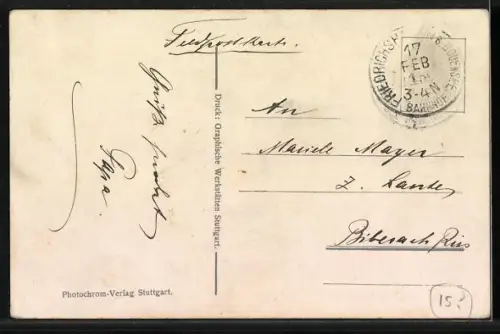 Feldpostkarte.
FRIEDRICHSHAFEN BODENSEE
17
FEB
3-4 N
BAHNHOF
Grüße sendet
Papa.
Druck: Graphische Werkstätten Stuttgart.
An
Mariele Mayer
z.
Biberach Riss
Photochrom-Verlag Stuttgart.
15?